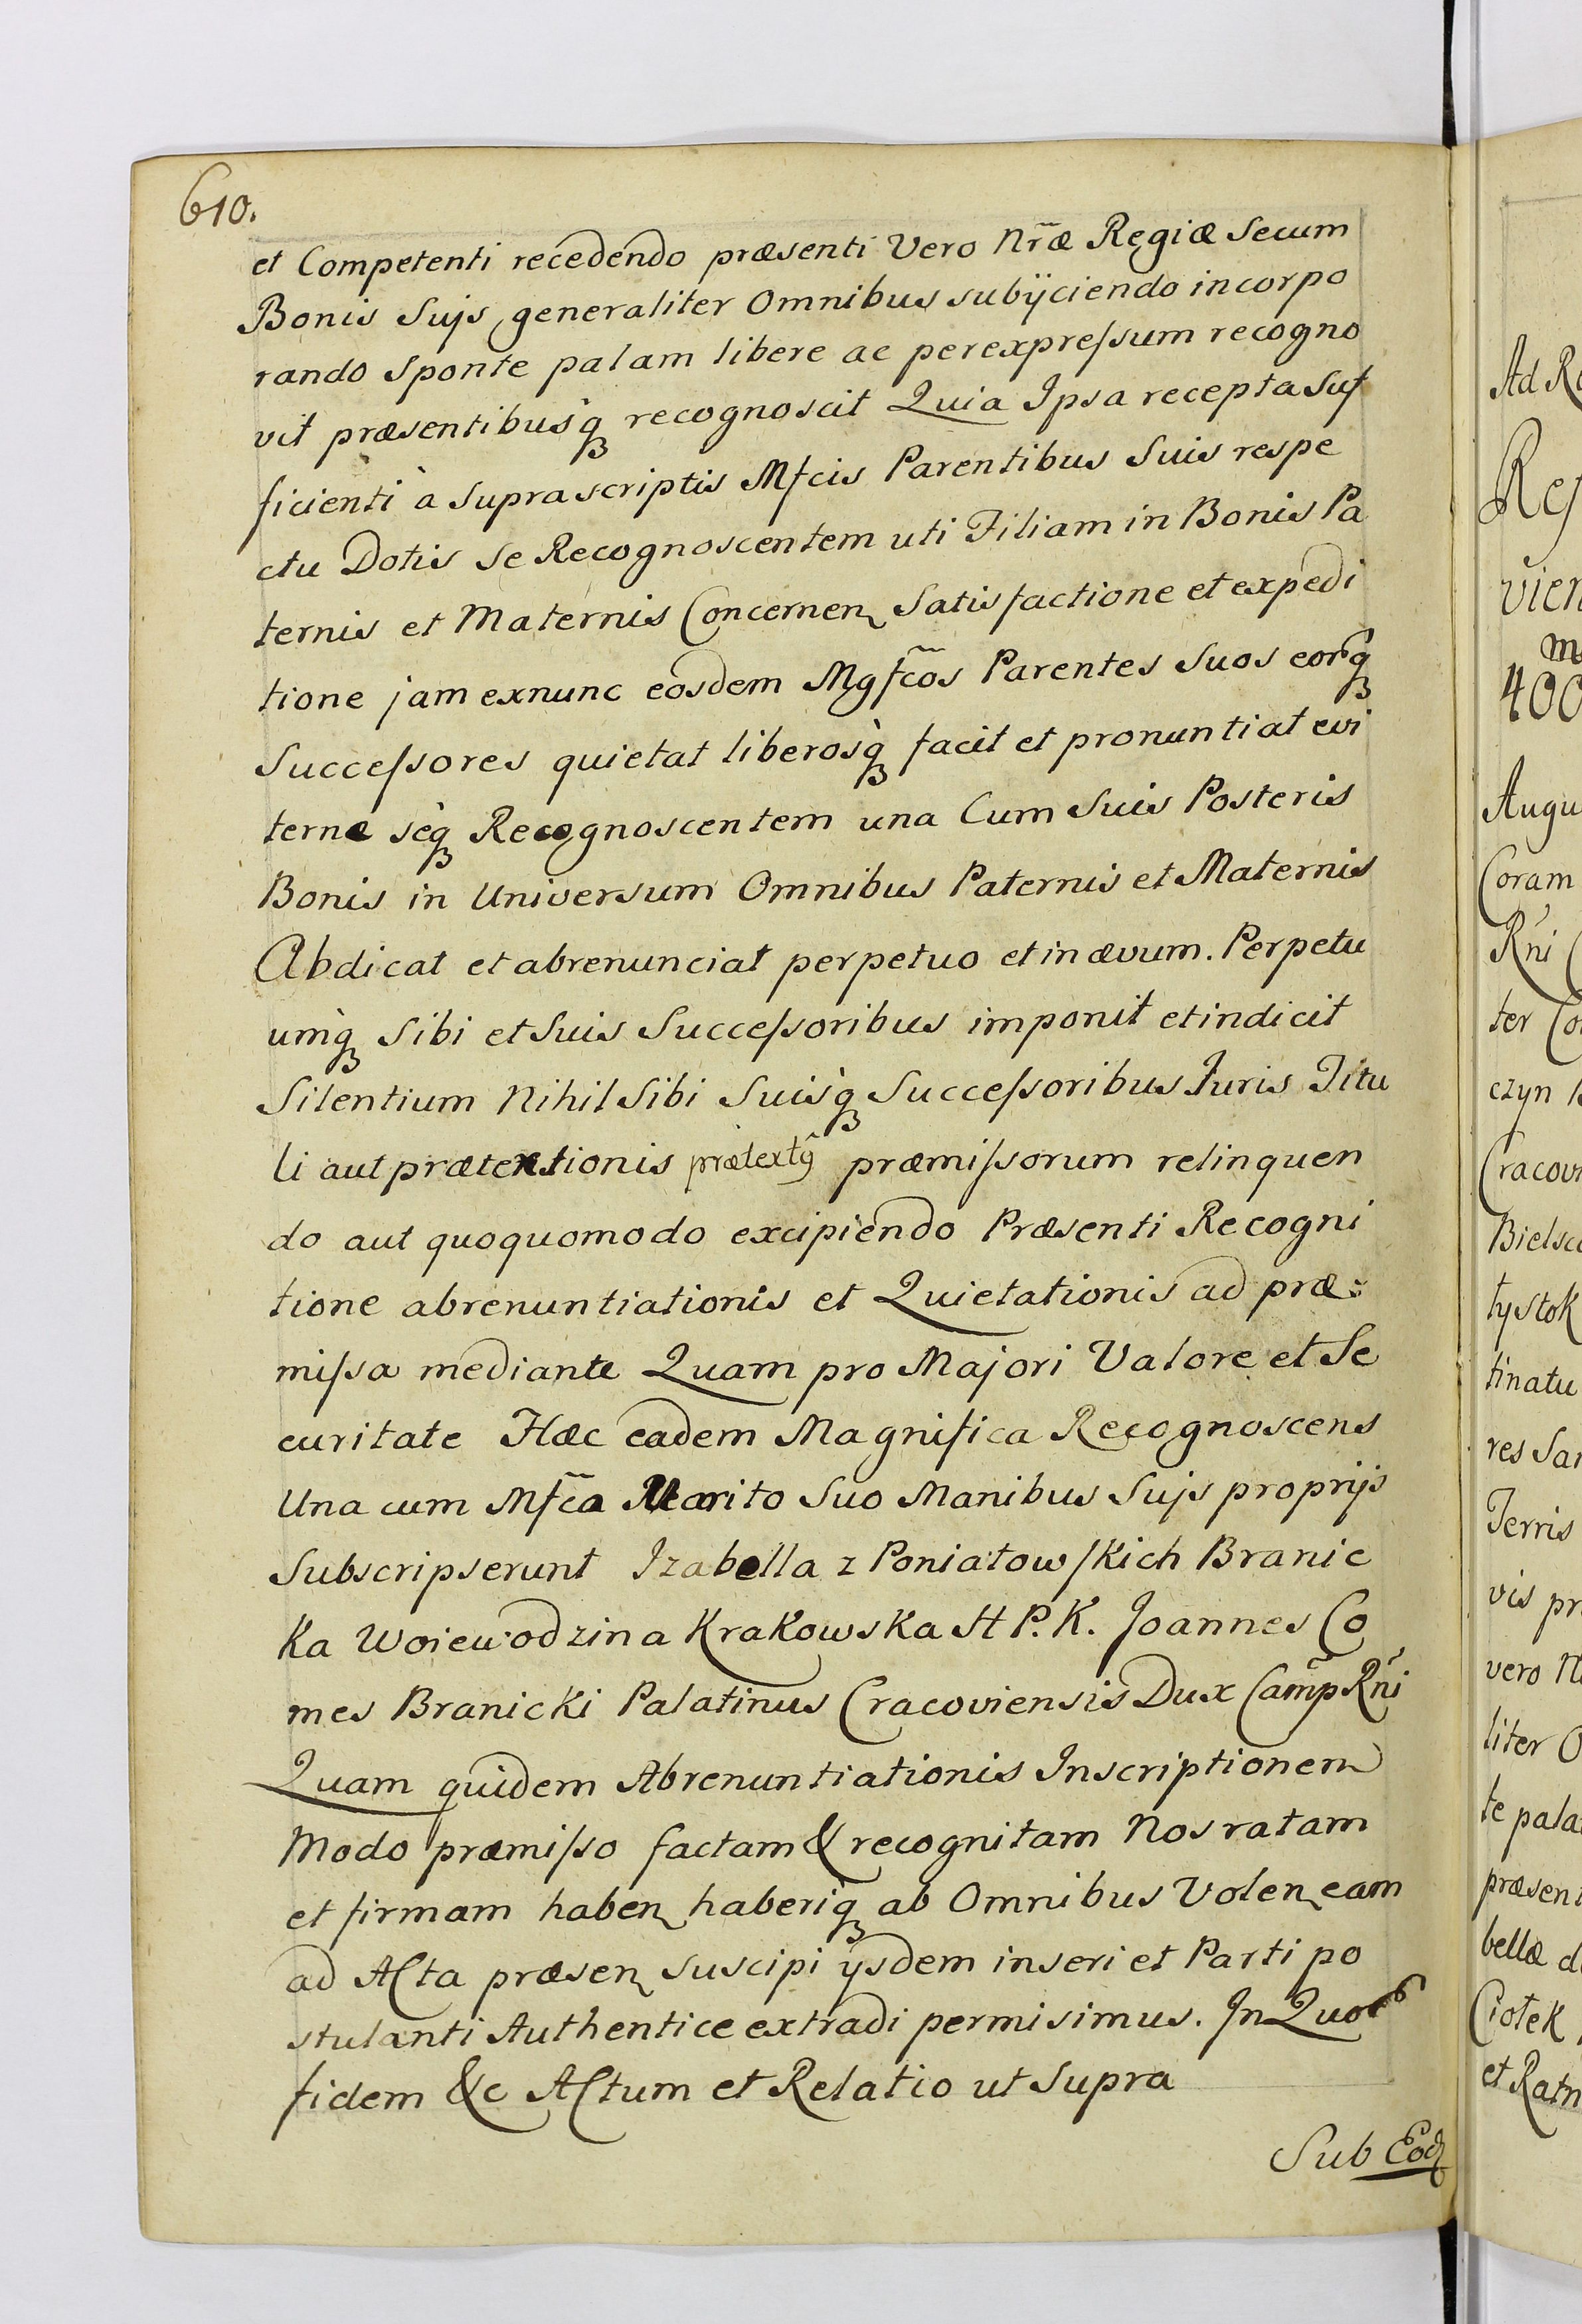 610.
et Competenti recedendo præsenti Vero Nr̃æ Regiæ Secum
Bonis Sujs generaliter Omnibus subÿciendo incorpo
rando sponte palam libere ac perexpreſsum recogno
vit præsentibusq́ꝫ recognoscit Quia Ipsa recepta Suf
ficienti à Suprascriptis Mfcis Parentibus Suis respe
ctu Dotis Se Recognoscentem uti Filiam in Bonis Pa
ternis et Maternis Concernen Satisfactione et expedi
tione jam exnunc eosdem Mgfc̃os Parentes Suos eorq́ꝫ
Succeſsores quietat liberosq́ꝫ facit et pronuntiat evi
terne seq́ꝫ Recognoscentem una Cum Suis Posteris
Bonis in Universum Omnibus Paternis et Maternis
Abdicat et abrenunciat perpetuo et in ævum. Perpetu
umq́ꝫ Sibi et Suis Succeſsoribus imponit et indicit
Silentium Nihil Sibi Suisq́ꝫ Succeſsoribus Iuris Titu
li aut prætensionis prætextũ præmiſsorum relinquen
do aut quoquomodo excipiendo Præsenti Recogni
tione abrenuntiationis et Quietationis ad præ:
miſsa mediante Quam pro Majori Valore et Se
curitate Hæc eadem Magnifica Recognoscens
Una cum Mfc̃a Marito Suo Manibus Sujs proprijs
Subscripserunt Izabella z Poniatowſkich Branic
Ka Woiewodzina KrakowsKa H P. K. Joannes Co
mes Branicki Palatinus Cracoviensis Dux Cam̃p Rńi
Quam quidem Abrenuntiationis Inscriptionem
Modo præmiſso factam & recognitam Nos ratam
et firmam haben haberiqꝫ ab Omnibus Volen eam
ad Acta præsen suscipi ÿsdem inseri et Parti po
stulanti Authentice extradi permisimus. In Quor
fidem &c Actum et Relatio ut Supra
Sub Eod
Ad R
Reſ
vien
400
Augu
Coram
Rńi
ter Co
czyn
Cracov
Bielsc
tystok
tinatu
res Sa
Terris
vis pr
vero N
liter O
te pala
præsen
bellæ d
Ciotek
et Ratn